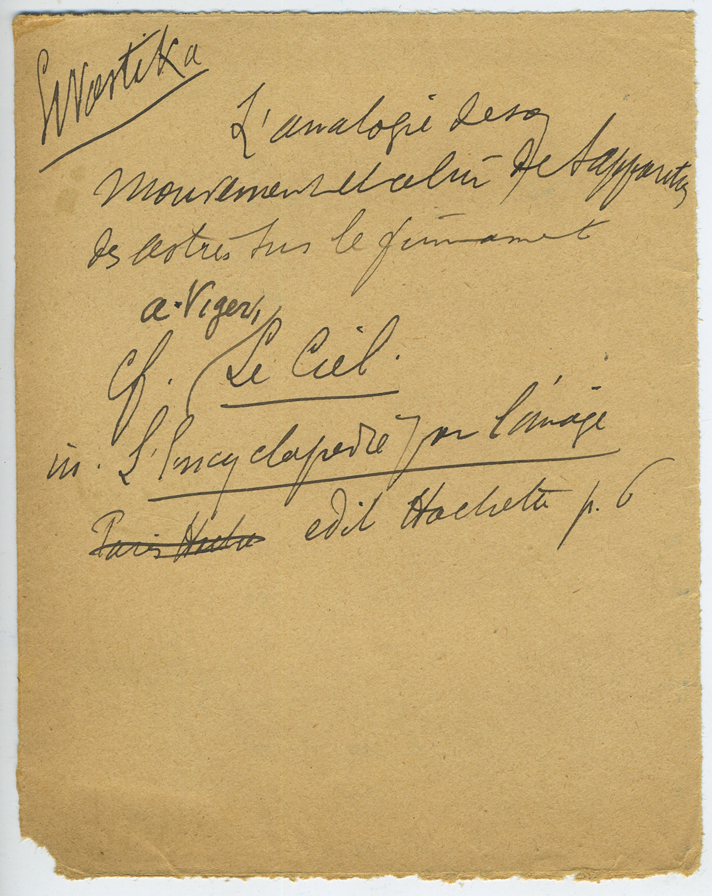 Swastika
L'analogie de son
mouvement et celui de l'apparition
des astres sur le firmament
a. Viger,
cf. Le Ciel.
in. L'Encyclopedie par l'image
Paris Hache edit Hachette p. 6